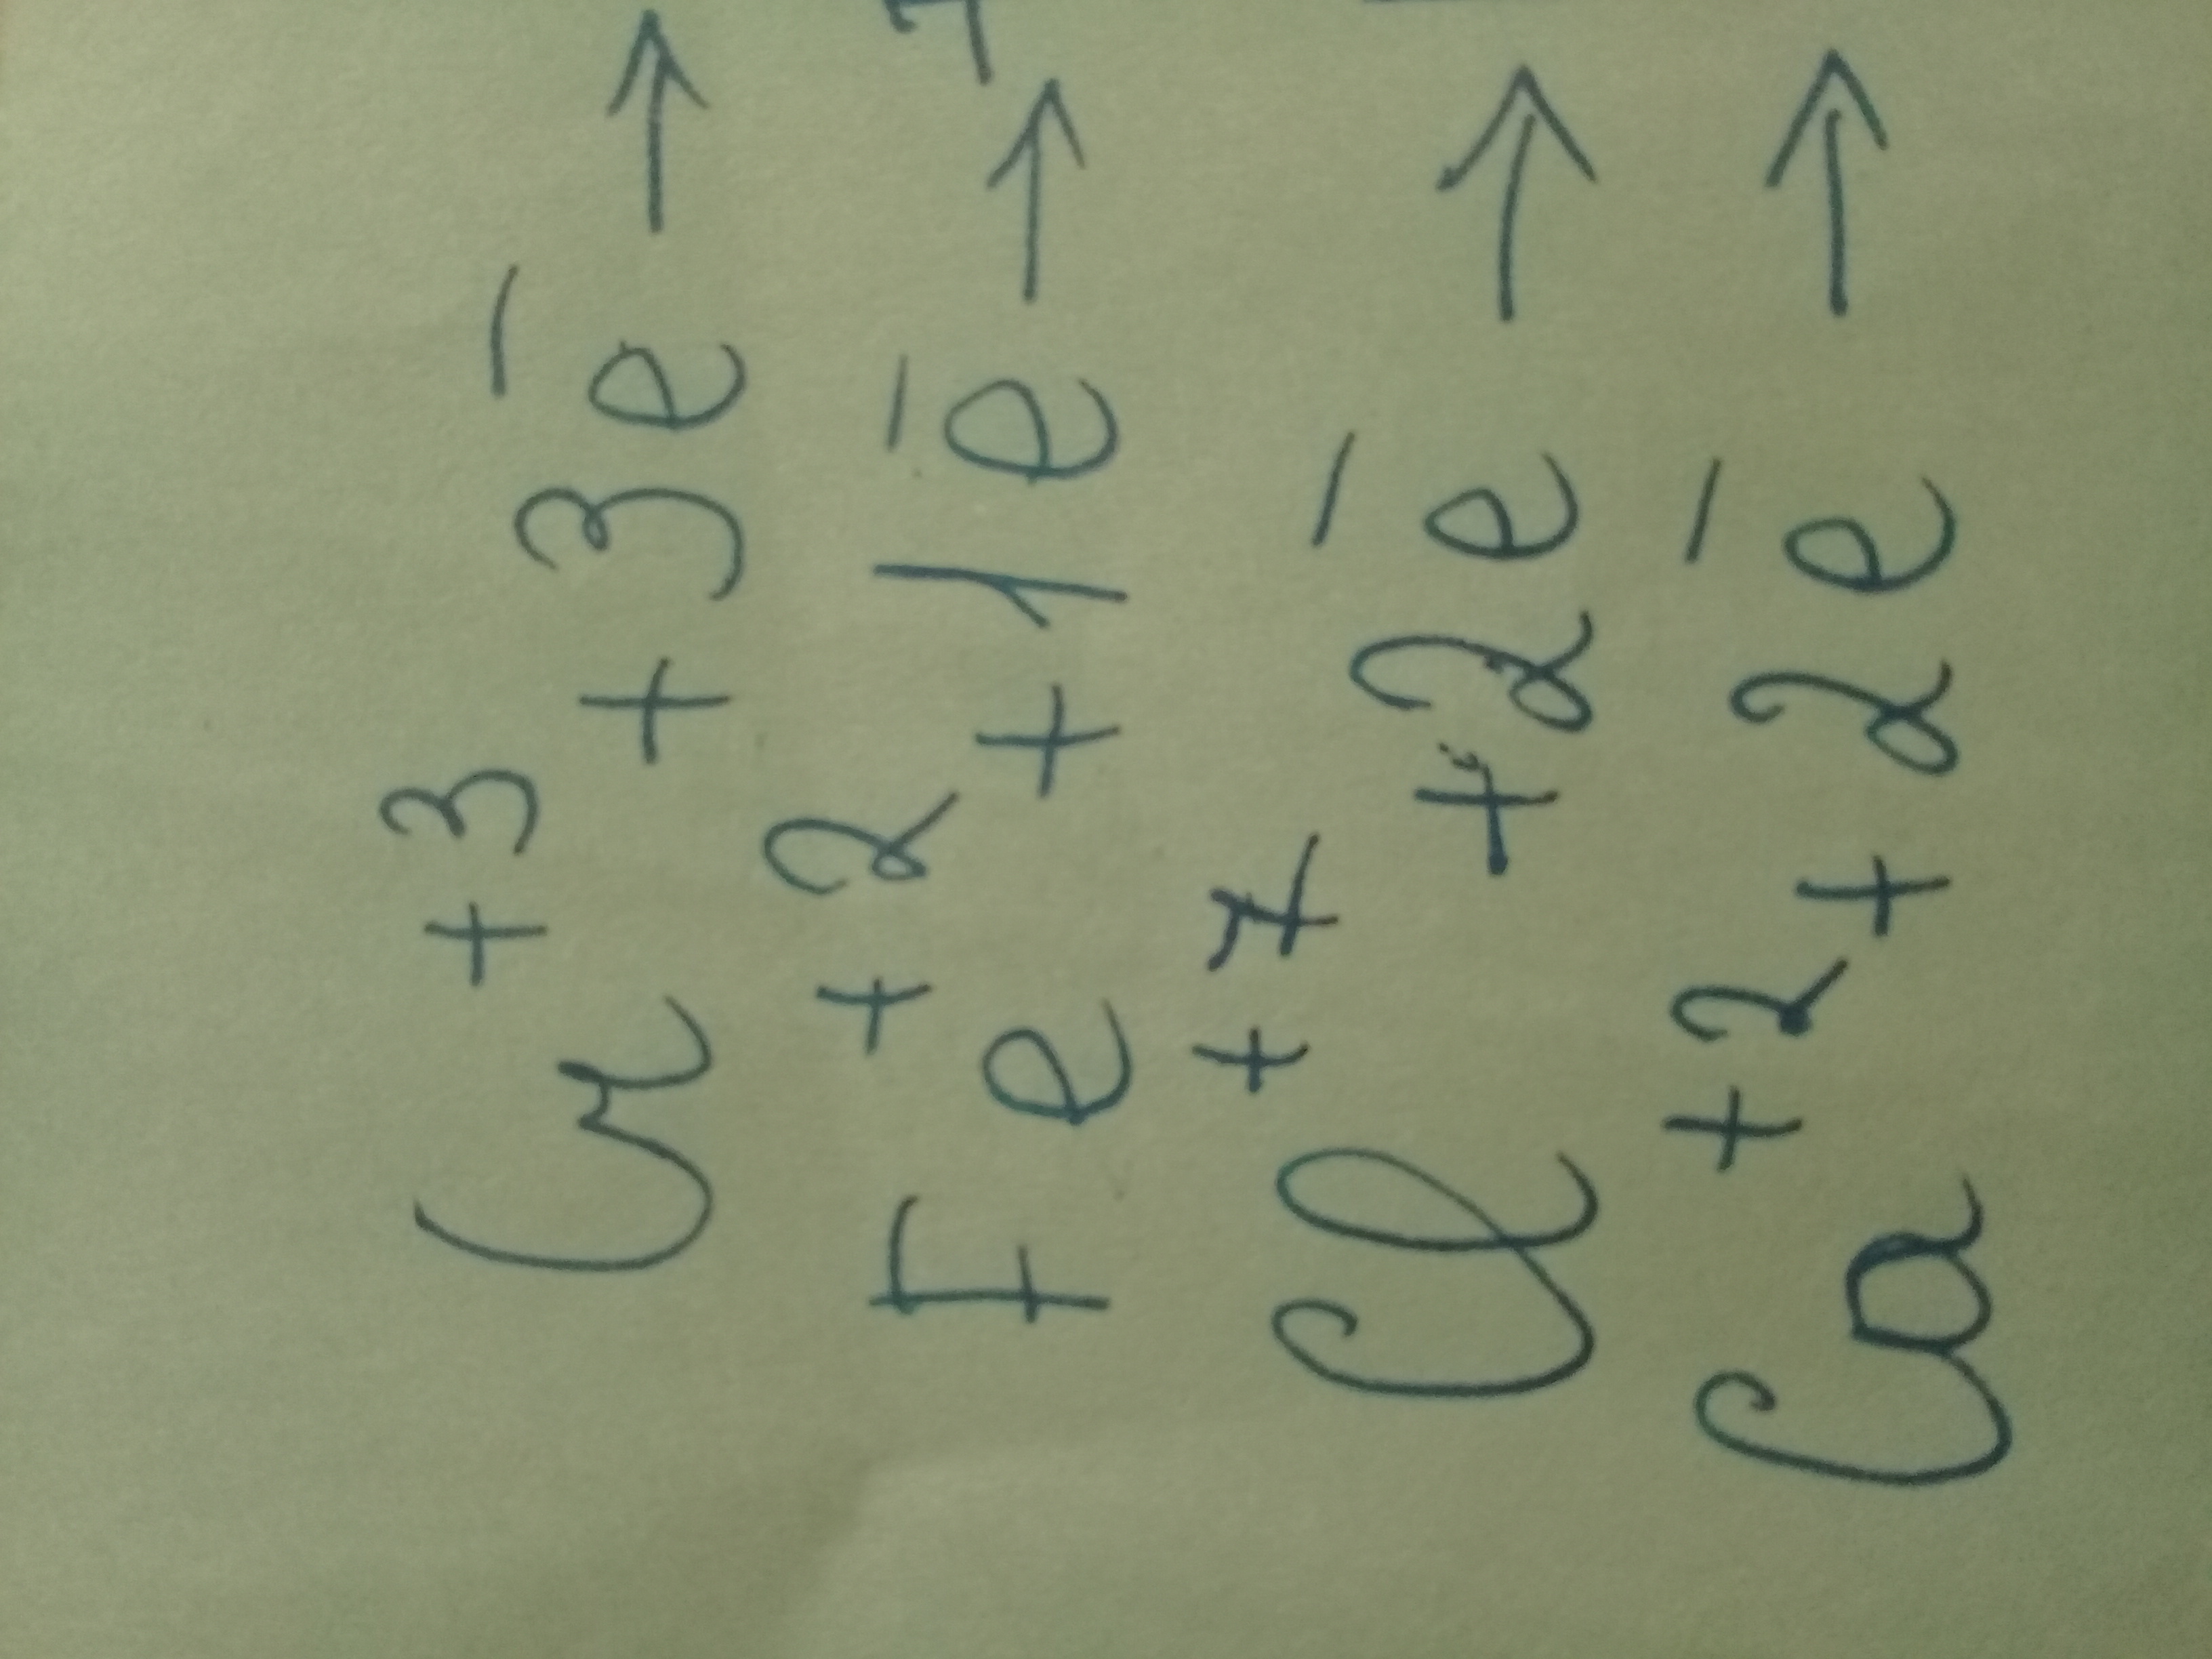 Cr⁺³ + 3e⁻ →
Fe⁺² + 1e⁻ →
Cl⁺⁷ + 2e⁻ →
Ca⁺² + 2e⁻ →